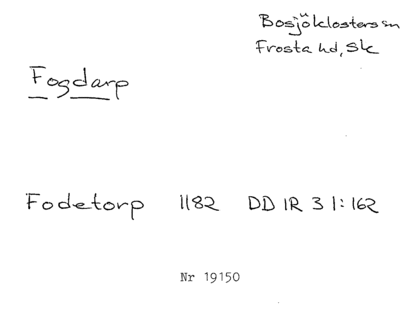 Bosjöklosters sn
Frosta hd, Sk
Fogdarp
Fodetorp 1182 DD 1R 3 1:162
Nr 19150